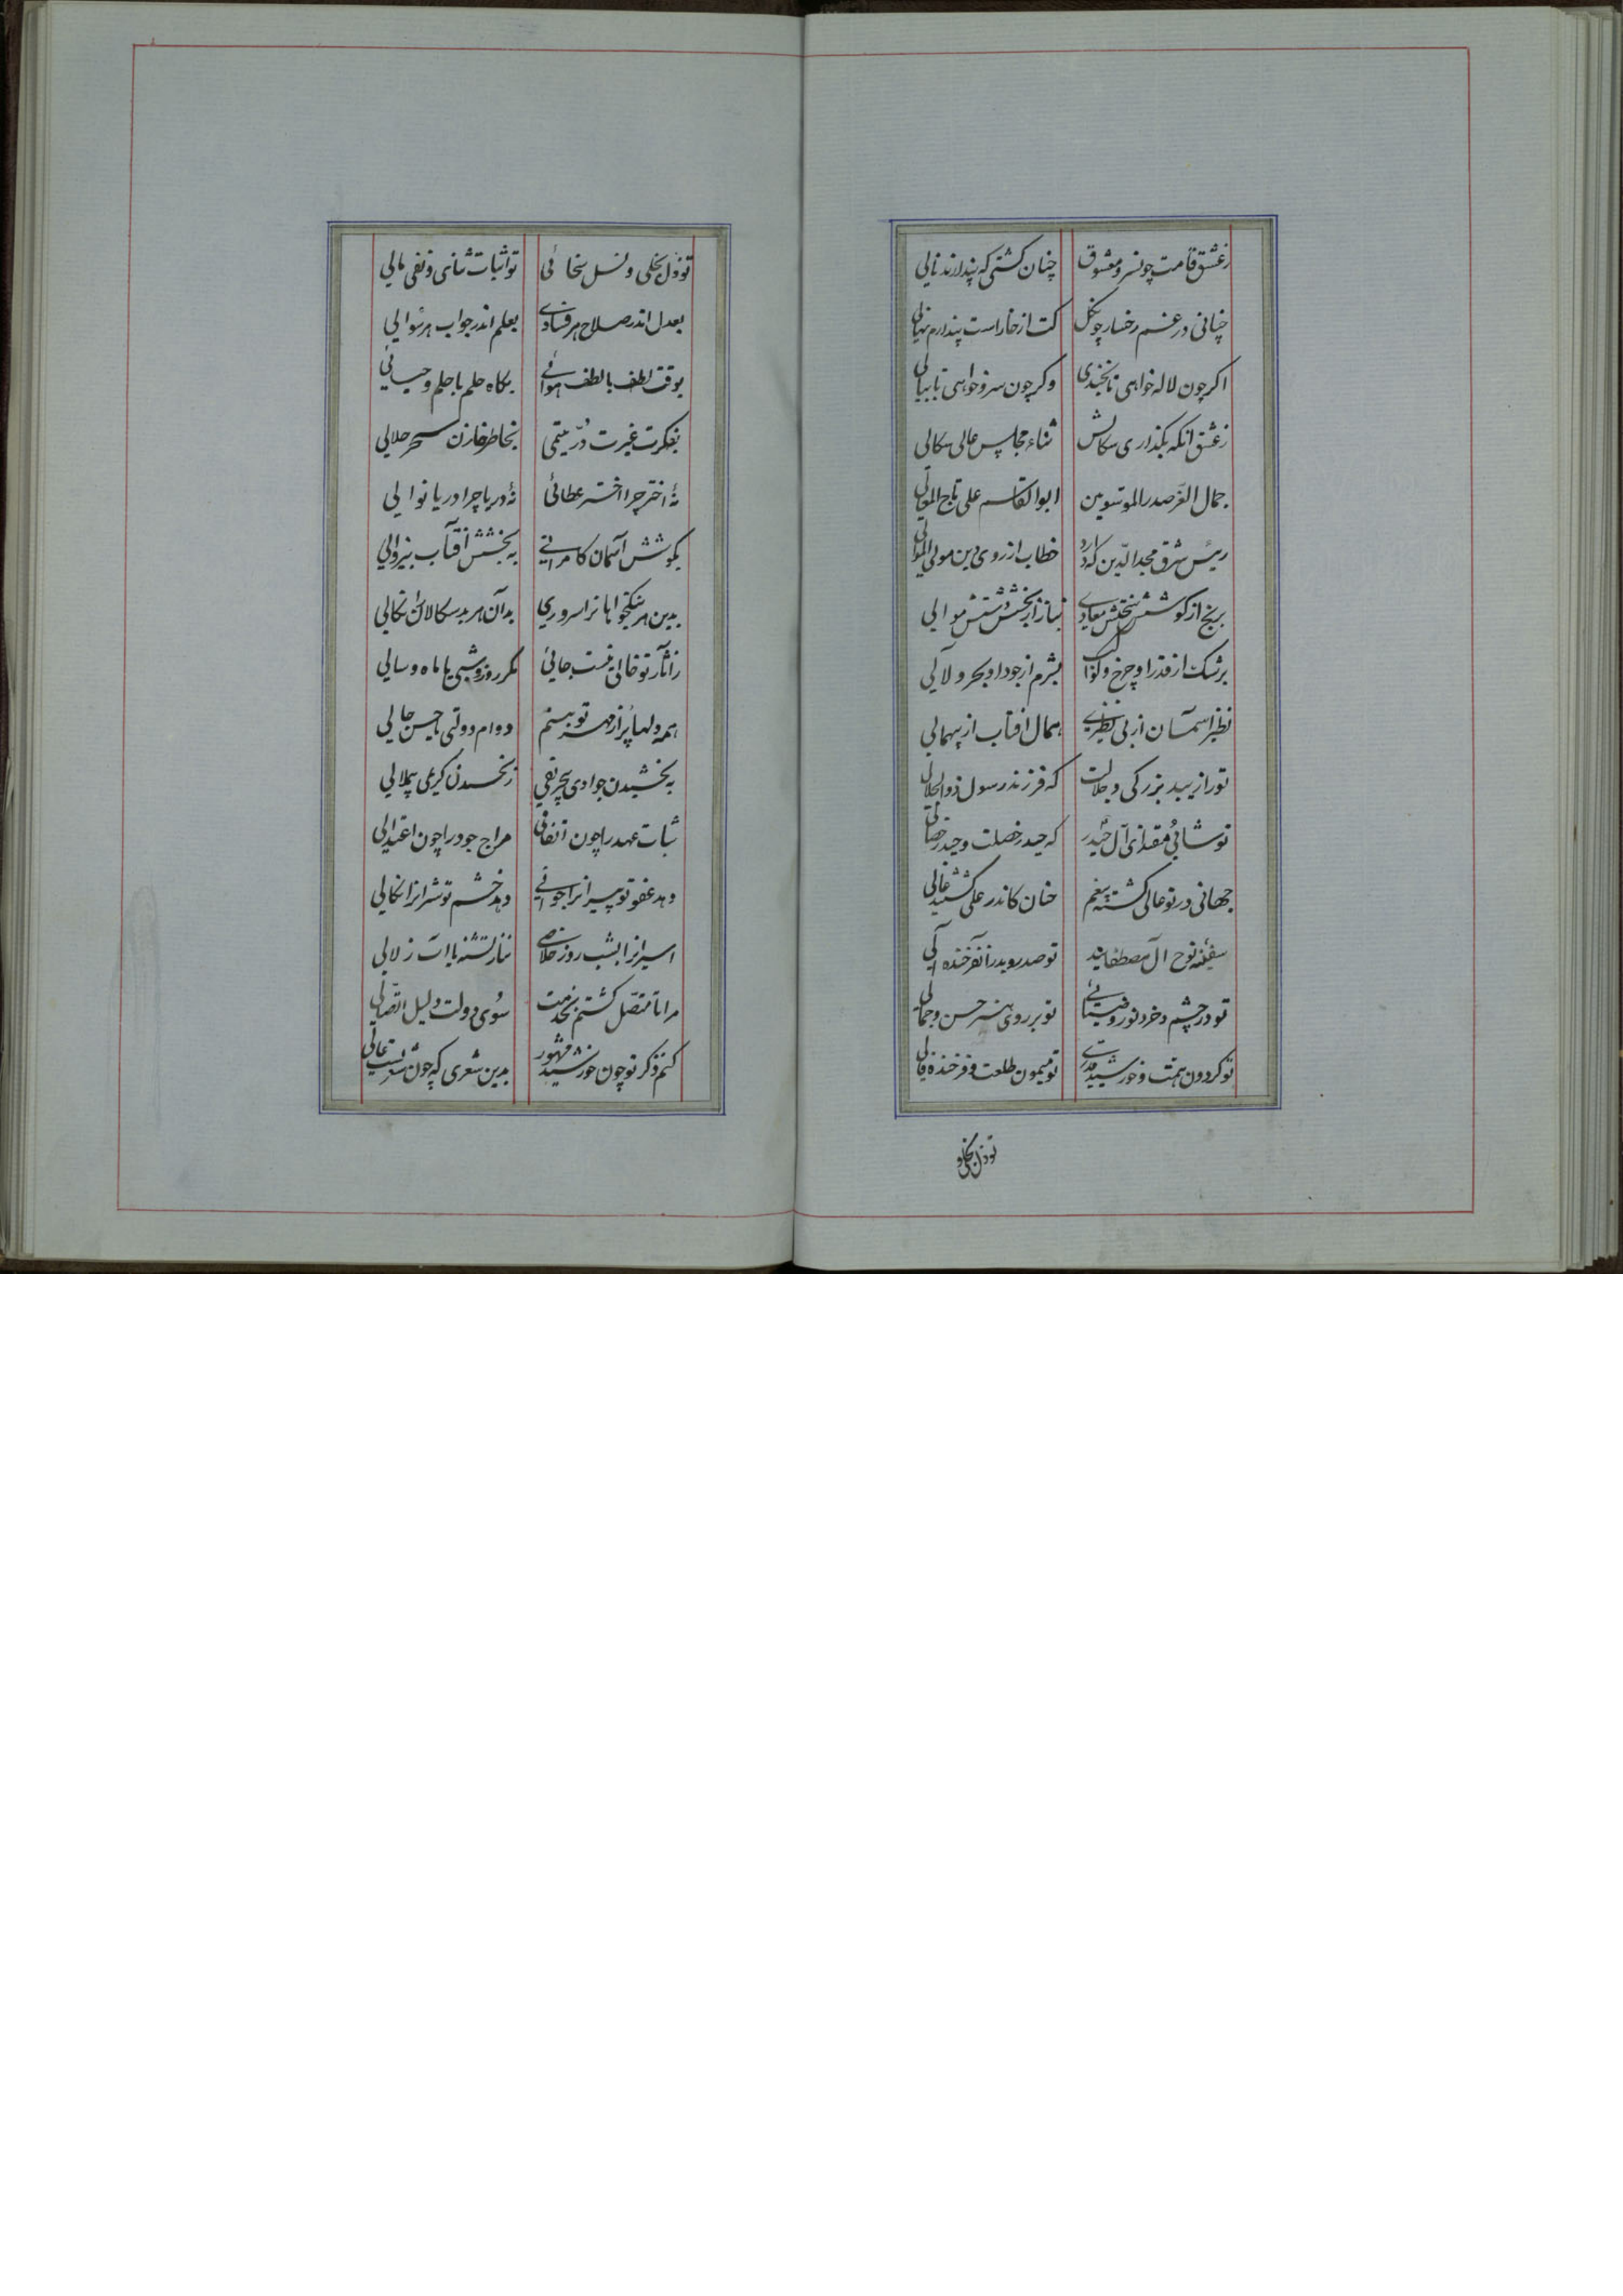 زعشق قامت چون سرو معشوق چنان کشتی که پندارند نالی
چنانی در غم رخسار چون گل کت از خار است پندارم نهالی
اکر چون لاله خواهی تا بخندی وکر چون سرو خواهی تا ببالی
زعشق آنکه بگذاری سکالش ثناء مجلس عالی سکالی
جمال العز صدر الموسویین ابوالقاسم علی تاج المعالی
رئیس شرق مجدالدین که دارد خطاب از روی دین مولی الموالی
برنج از کوشش معادی بناز از بخشش موالی
برشک از قدر او چرخ و کواکب بشرم از جود او بحر و لآلی
نظیر آسمان از بی نظیری همال آفتاب از بیهمالی
تو را زیبد بزرگی و جلالت که فرزند رسول ذوالجلالی
تو شائی مقتدای آل حیدر که حیدر خصلت و حیدر خصالی
جهانی در تو عالی کشته بیغم چنان کاندر علی شیعه غالی
سفینه نوح آل مصطفایند تو صدر و بدر آن فرخنده آلی
تو در چشم و خرد نور و ضیائی تو بر روی هنر حسن و جمالی
تو کردون همت و خورشید قدری تو میمون طلعت و فرخنده فالی
تو ذل بخل و
تو ذل بخلی و نسل سخائی تو اثبات ثنای و نفی مالی
بعدل اندر صلاح هر فسادی بعلم اندر جواب هر سوالی
بوقت لطف با لطف هوائی بکاه حلم با حلم و جبالی
بفکرت غیرت در یتیمی بخاطر خازن سحر حلالی
نه اختر چرا اختر عطائی نه دریا چرا دریا نوالی
بکوشش آسمان کامرانی به بخشش آفتاب بیزوالی
بدین هر نیکخواهانرا سروری بدان هر بدسکالان را نکالی
زآثار تو خالی نیست جائی مکر روز و شبی یا ماه و سالی
همه دلها پر از مهر تو بینم دوام دولتی یا حسن حالی
به بخشیدن جوادی زبخشیدن کریمی بیملالی
ثبات عهد را چون اتفاقی مزاج جود را چون اعتدالی
دهد عفو تو پیرانرا جوانی دهد خشم تو شرانرا نکالی
اسیرانرا بشب روز خلاصی نیاز تشنه با آب زلالی
مرا تا متصل کشتم بخدمت سوی دولت دلیل اتصالی
کنم ذکر تو چون خورشید مشهور بدین شعری که چون شعریست عالی